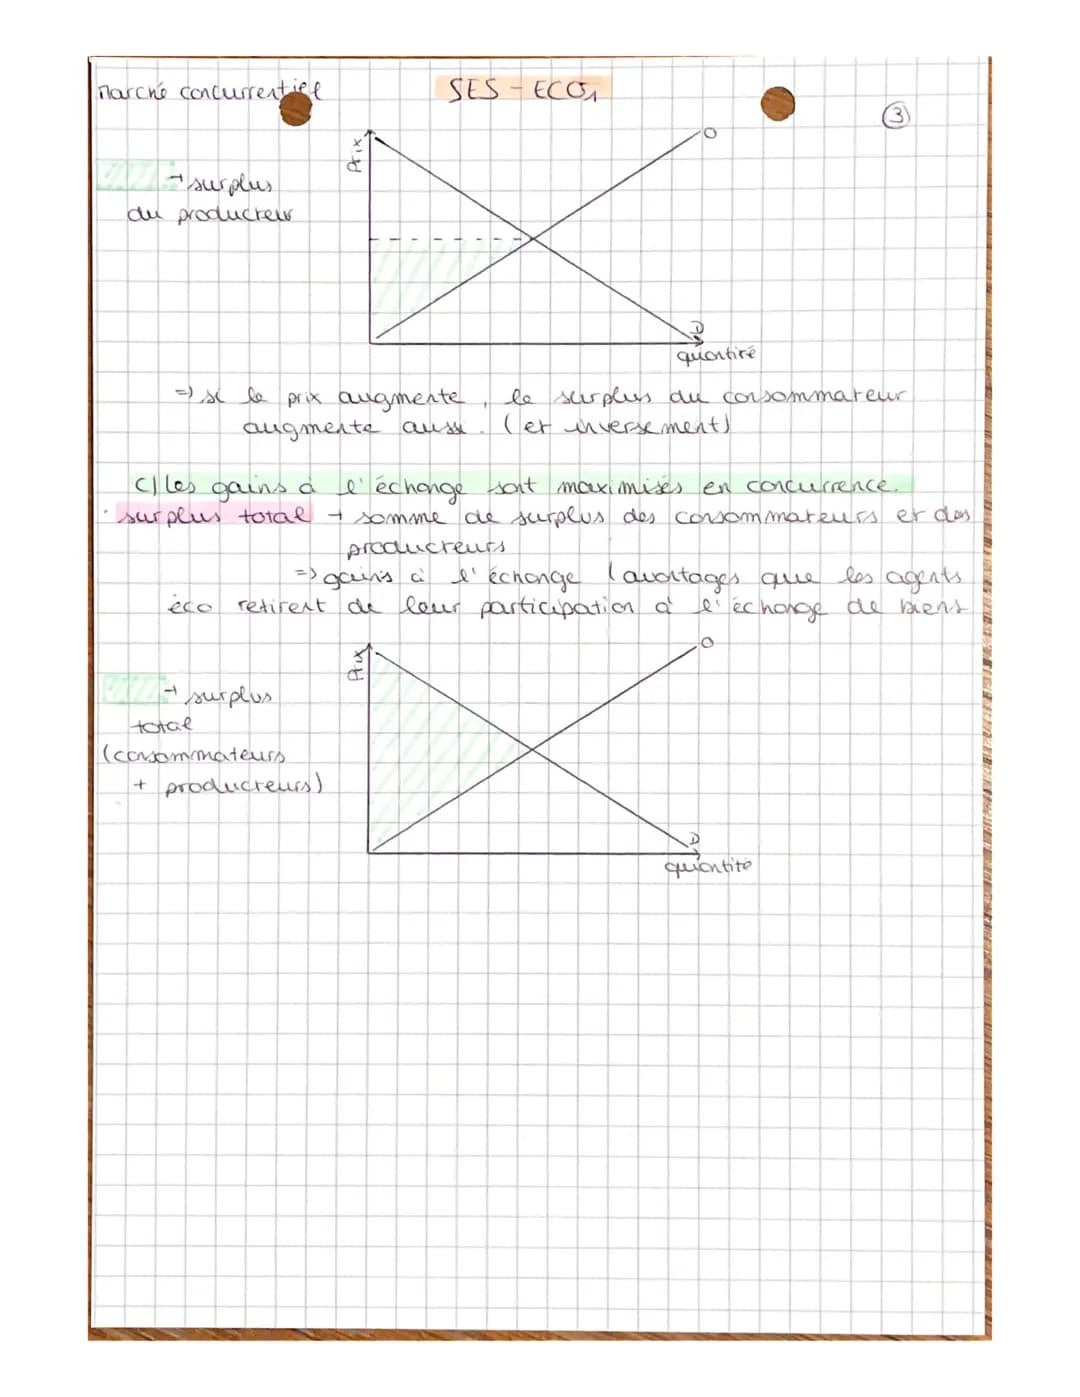 marché concurrentiel
SES - ECO1
3
Prix
O
→ surplus
du producteur
D
quantité
=> si le prix augmente, le surplus du consommateur
augmente aussi. (et inversement)
C) Les gains à l'échange sont maximisés en concurrence.
· surplus total → somme de surplus des consommateurs et des
producteurs
=> gains à l'échange (avantages que les agents
éco retirent de leur participation à l'échange de biens
Prix
O
→ surplus
total
(consommateurs
+ producteurs)
D
quantité